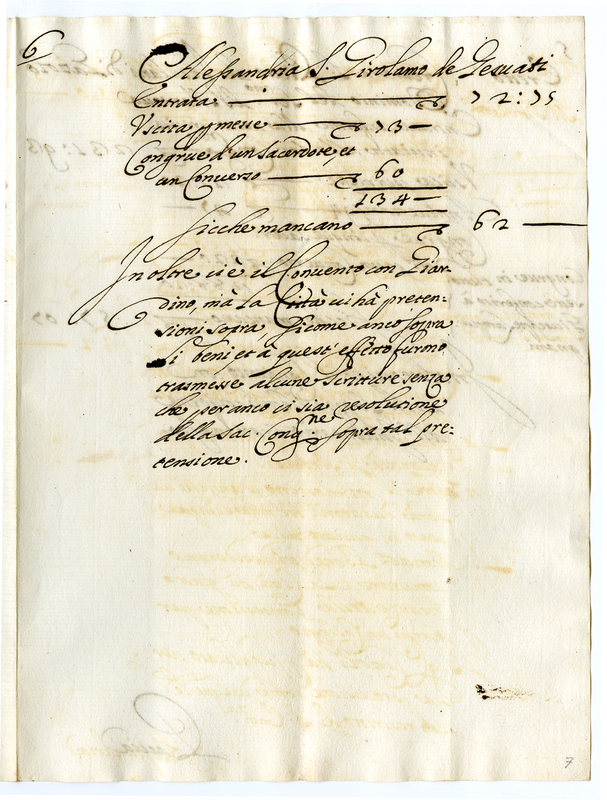 6
Alessandria S. Girolamo de Gesuati
Entrata — 72:75
Vscita p messe — 73 —
Congrue d'un sacerdote, et
un Converso — 60
134 —
Sicche mancano — 62 —
In oltre ci è il Convento con Giar-
dino, mà la Città ui hà preten-
sioni sopra, sicome anco sopra
li beni, et à quest'effetto furono
trasmesse alcune scritture senza
che per anco ci sia resolutione
della Sac. Cong.ne sopra tal pre-
tensione.
7